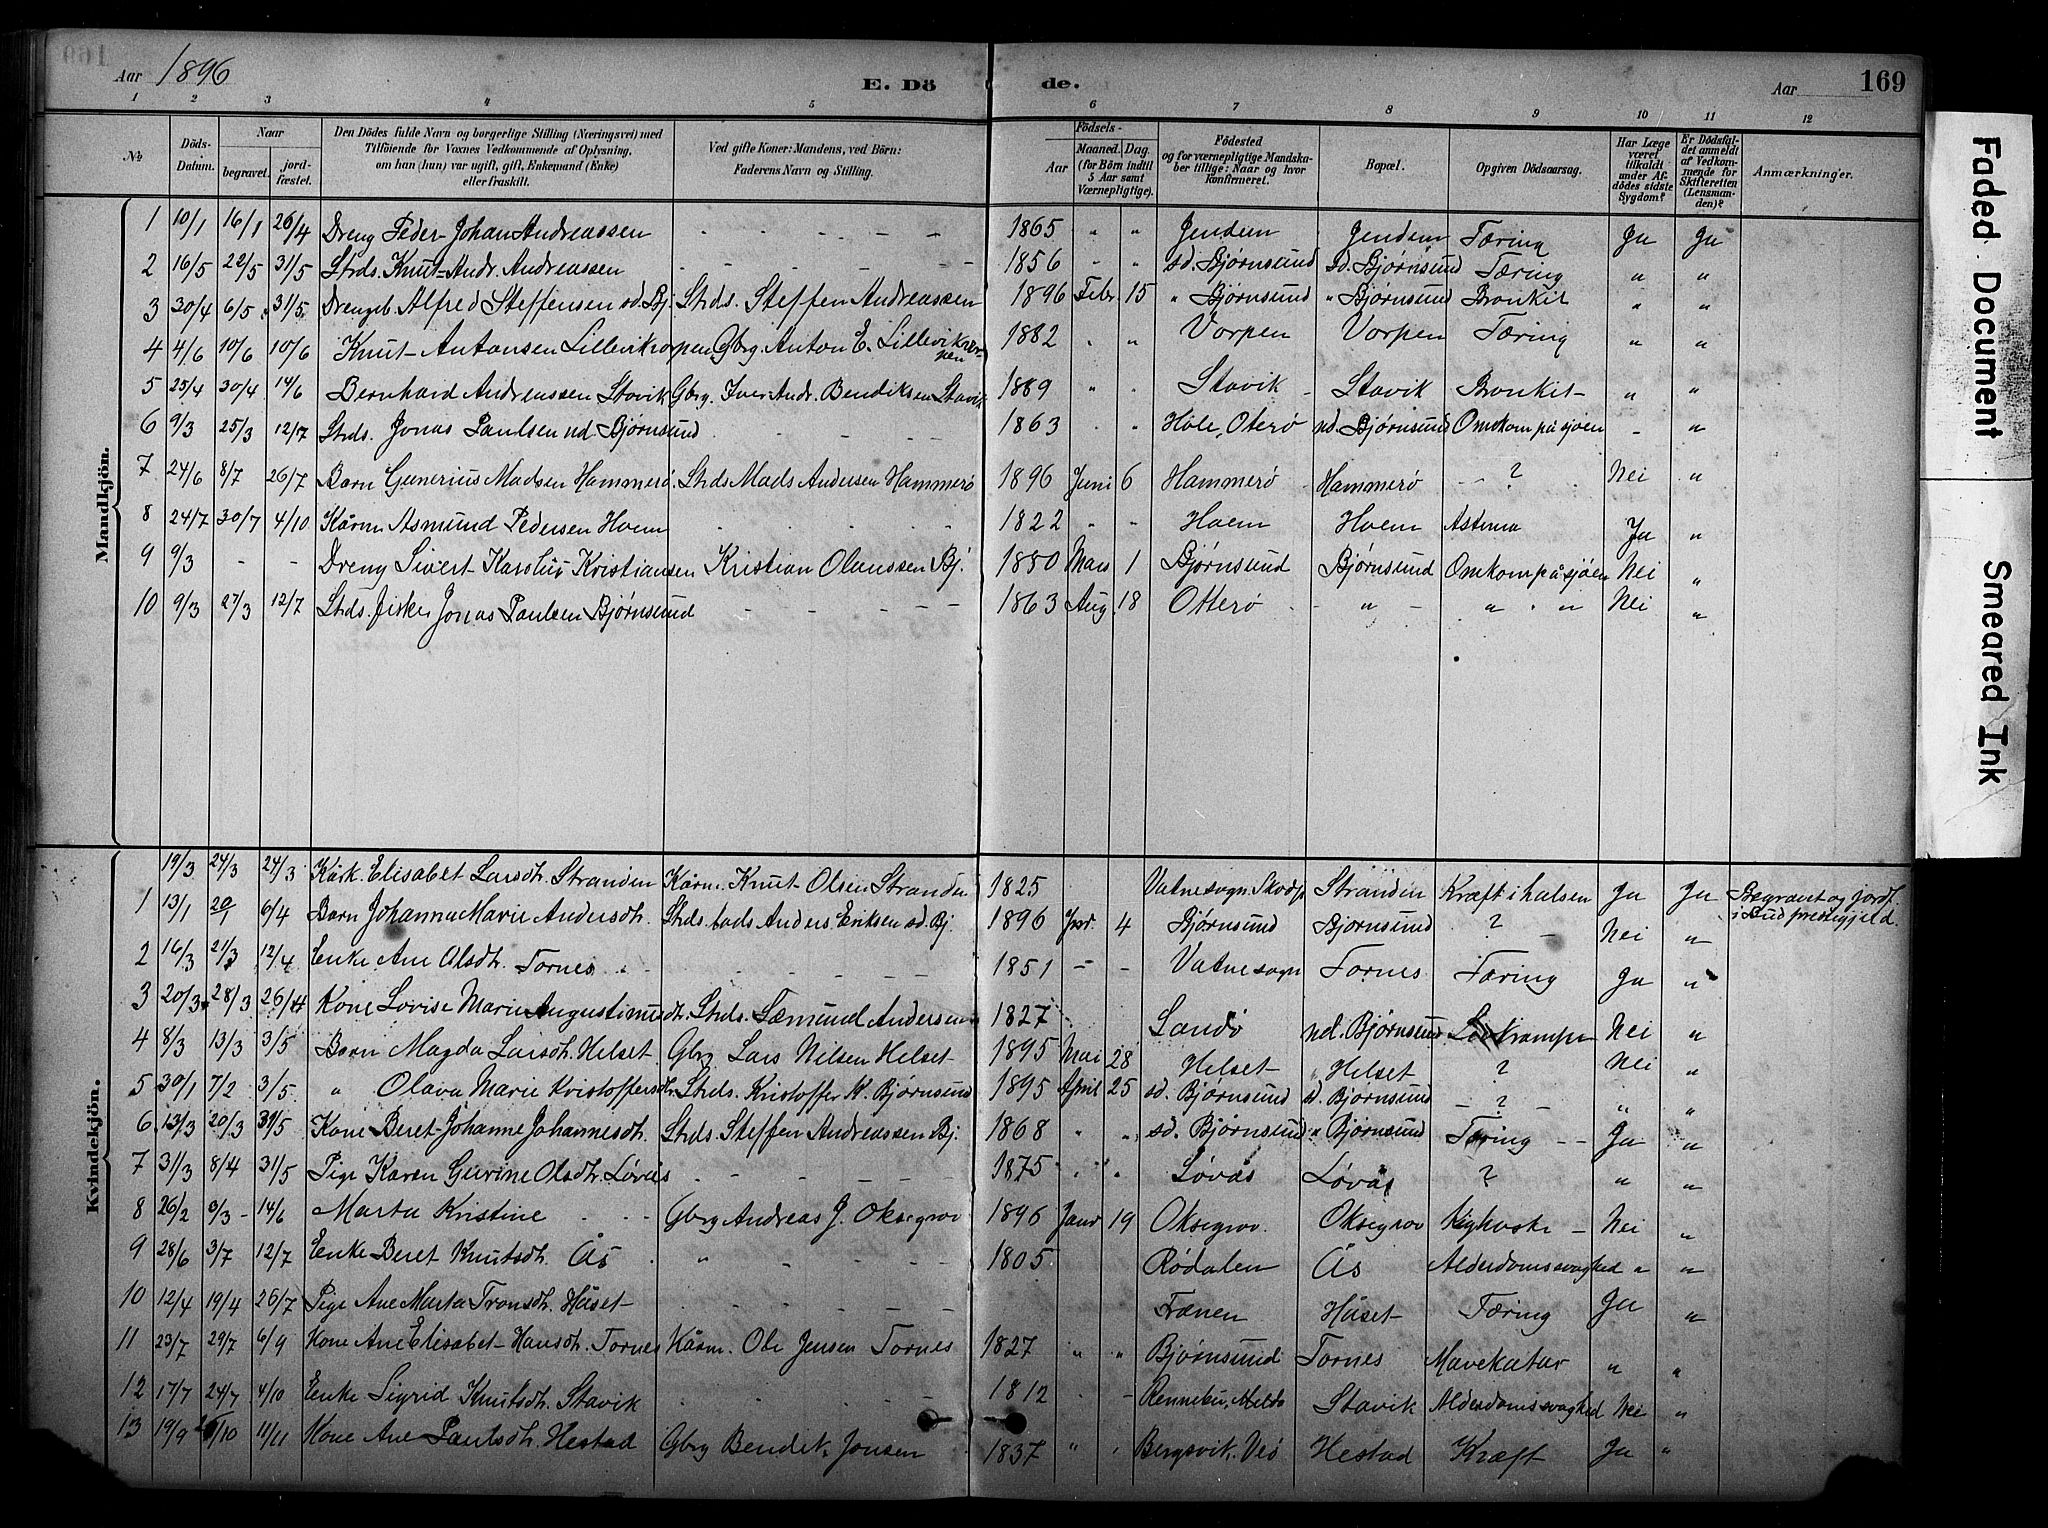 169
Aar 1896
E. Döde.
Aar
169
1 2 3 4 5 6 7 8 9 10 11 12
№
Döds-Datum.
Naar
begravet.
jord-fæstet.
Den Dödes fulde Navn og borgerlige Stilling (Næringsvei) med
Tilföiende for Voxnes Vedkommende af Oplysning,
om han (hun) var ugift, gift, Enkemand (Enke)
eller fraskilt.
Ved gifte Koner: Mandens, ved Börn:
Faderens Navn og Stilling.
Födsels-
Aar
Maaned. Dag.
(for Börn indtil
5 Aar samt
Værnepligtige).
Födested
og for værnepligtige Mandska-
ber tillige: Naar og hvor
konfirmeret.
Bopæl.
Opgiven Dödsaarsag.
Har Læge
været
tilkaldt
under Af-
dödes sidste
Sygdom?
Er Dödsfal-
det anmeldt
af Vedkom-
mende for
Skifteretten
(Lensman-
den)?
Anmærkninger.
Mandkjön.
1 10/1 16/1 26/4 Dreng Peder Johan Andreassen - - - - - 1865 " " Jendem Jendem Tæring Ja Ja
2 16/5 22/5 31/5 Strds. Knut Andr. Andreassen - - - - - 1856 " " sd. Bjørnsund sd. Bjørnsund Tæring " "
3 30/4 6/5 31/5 Drengb. Alfred Steffensen sd. Bj. Strds. Steffen Andreassen 1896 Febr. 15 " Bjørnsund " Bjørnsund Bronkit " "
4 4/6 10/6 10/6 Knut Antonsen Lillevikvorpen Gbrg Anton E. Lillevikvorpen 1882 " " Vorpen Vorpen Tæring " "
5 25/4 30/4 14/6 Bernhard Andreassen Stavik Gbrg. Iver Andr. Bendiksen Stavik 1889 " " Stavik Stavik Bronkit " "
6 9/3 25/3 12/7 Strds. Jonas Paulsen nd. Bjørnsund - - - 1863 " " Hole, Otterø nd. Bjørnsund Omkom på sjøen - "
7 24/6 8/7 26/7 Barn Gunerius Madsen Hammerø. Strds Mads Andersen Hammerø 1896 Juni 6 Hammerø Hammerø - ? Nei "
8 24/7 30/7 4/10 Kårm Asmund Pedersen Hoem - - - - 1822 " " Hoem Hoem Astma Ja "
9 9/3 - - Dreng Sivert Karolus Kristiansen Kristian Olaussen Bj. 1880 Mars 1 Bjørnsund Bjørnsund Omkom på sjøen Nei "
10 9/3 27/3 12/7 Strds. fisker Jonas Paulsen Bjørnsund - - - - 1863 Aug. 18 Otterø - " - " " " Nei "
Kvindekjön.
19/3 24/3 24/3 Kårk. Elisabet Larsdtr. Stranden Kårm. Knut Olsen Stranden 1825 Vatnesogn. Skodje Stranden Kræft i halsen Ja Ja Begravet og jordf. i Bud prestegjeld.
1 13/1 20/1 6/4 Barn Johanna Marie Andersdtr. Strds. Anders Eriksen sd. Bj. 1896 Jan. 4 Bjørnsund Bjørnsund ? Nei "
2 16/3 21/3 12/4 Enke Ane Olsdtr. Tornes - - - - 1851 - - Vatnesogn Tornes Tæring Ja "
3 20/3 28/3 26/4 Kone Lovise Marie Augustinusdtr. Strds. Sæmund Andersen 1827 " Sandø nd. Bjørnsund Nei "
4 8/3 13/3 3/5 Barn Magda Larsdtr. Helset Gbrg Lars Nilsen Helset 1895 Mai 28 Helset " Helset ? Nei "
5 30/1 7/2 3/5 " Olava Marie Kristoffersdtr Strds. Kristoffer K. Bjørnsund 1895 April 25 sd. Bjørnsund sd. Bjørnsund - ? - " "
6 13/3 20/3 31/5 Kone Beret Johanne Johannesdtr. Strds Steffen Andreassen Bj. 1868 " " sd. Bjørnsund " Bjørnsund Tæring - - Ja "
7 31/3 8/4 31/5 Pige Karen Gurine Olsdtr. Løvås - - - - 1875 " " Løvås Løvås ? " "
8 26/2 9/3 - 14/6 Marta Kristine Gbrg Andreas J. Oksegrov 1896 Janr 19 Oksegrov. Oksegrov Kighoste - Nei "
9 28/6 3/7 12/7 Enke Beret Knutsdtr. Ås " - - - 1805 Rødalen Ås Alderdomssvaghed " "
10 12/4 19/4 26/7 Pige Ane Marta Tronsdtr. Håset - - - - Frænen Håset Tæring Ja "
11 23/7 29/7 6/9 Kone Ane Elisabet Hansdtr. Tornes Kårm. Ole Jensen Tornes 1827 " " Bjørnsund Tornes Mavekatar " "
12 17/7 24/7 4/10 Enke Sigrid Knutsdtr. Stavik - - - - 1812 - Rennebu, Melda Stavik Alderdomssvaghed Nei "
13 19/9 /10 11/11 Kone Ane Paulsdtr. Hestad Gbrg Bendik Jonsen 1837 " " Bergsvik, Veø Hestad Kræft Ja "
Faded Document
Smeared Ink